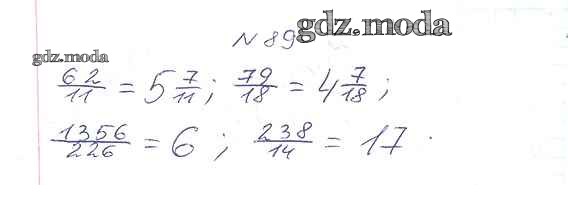 N 89
gdz.moda
gdz.moda
62/11 = 5 7/11; 79/18 = 4 7/18;
1356/226 = 6; 238/14 = 17.